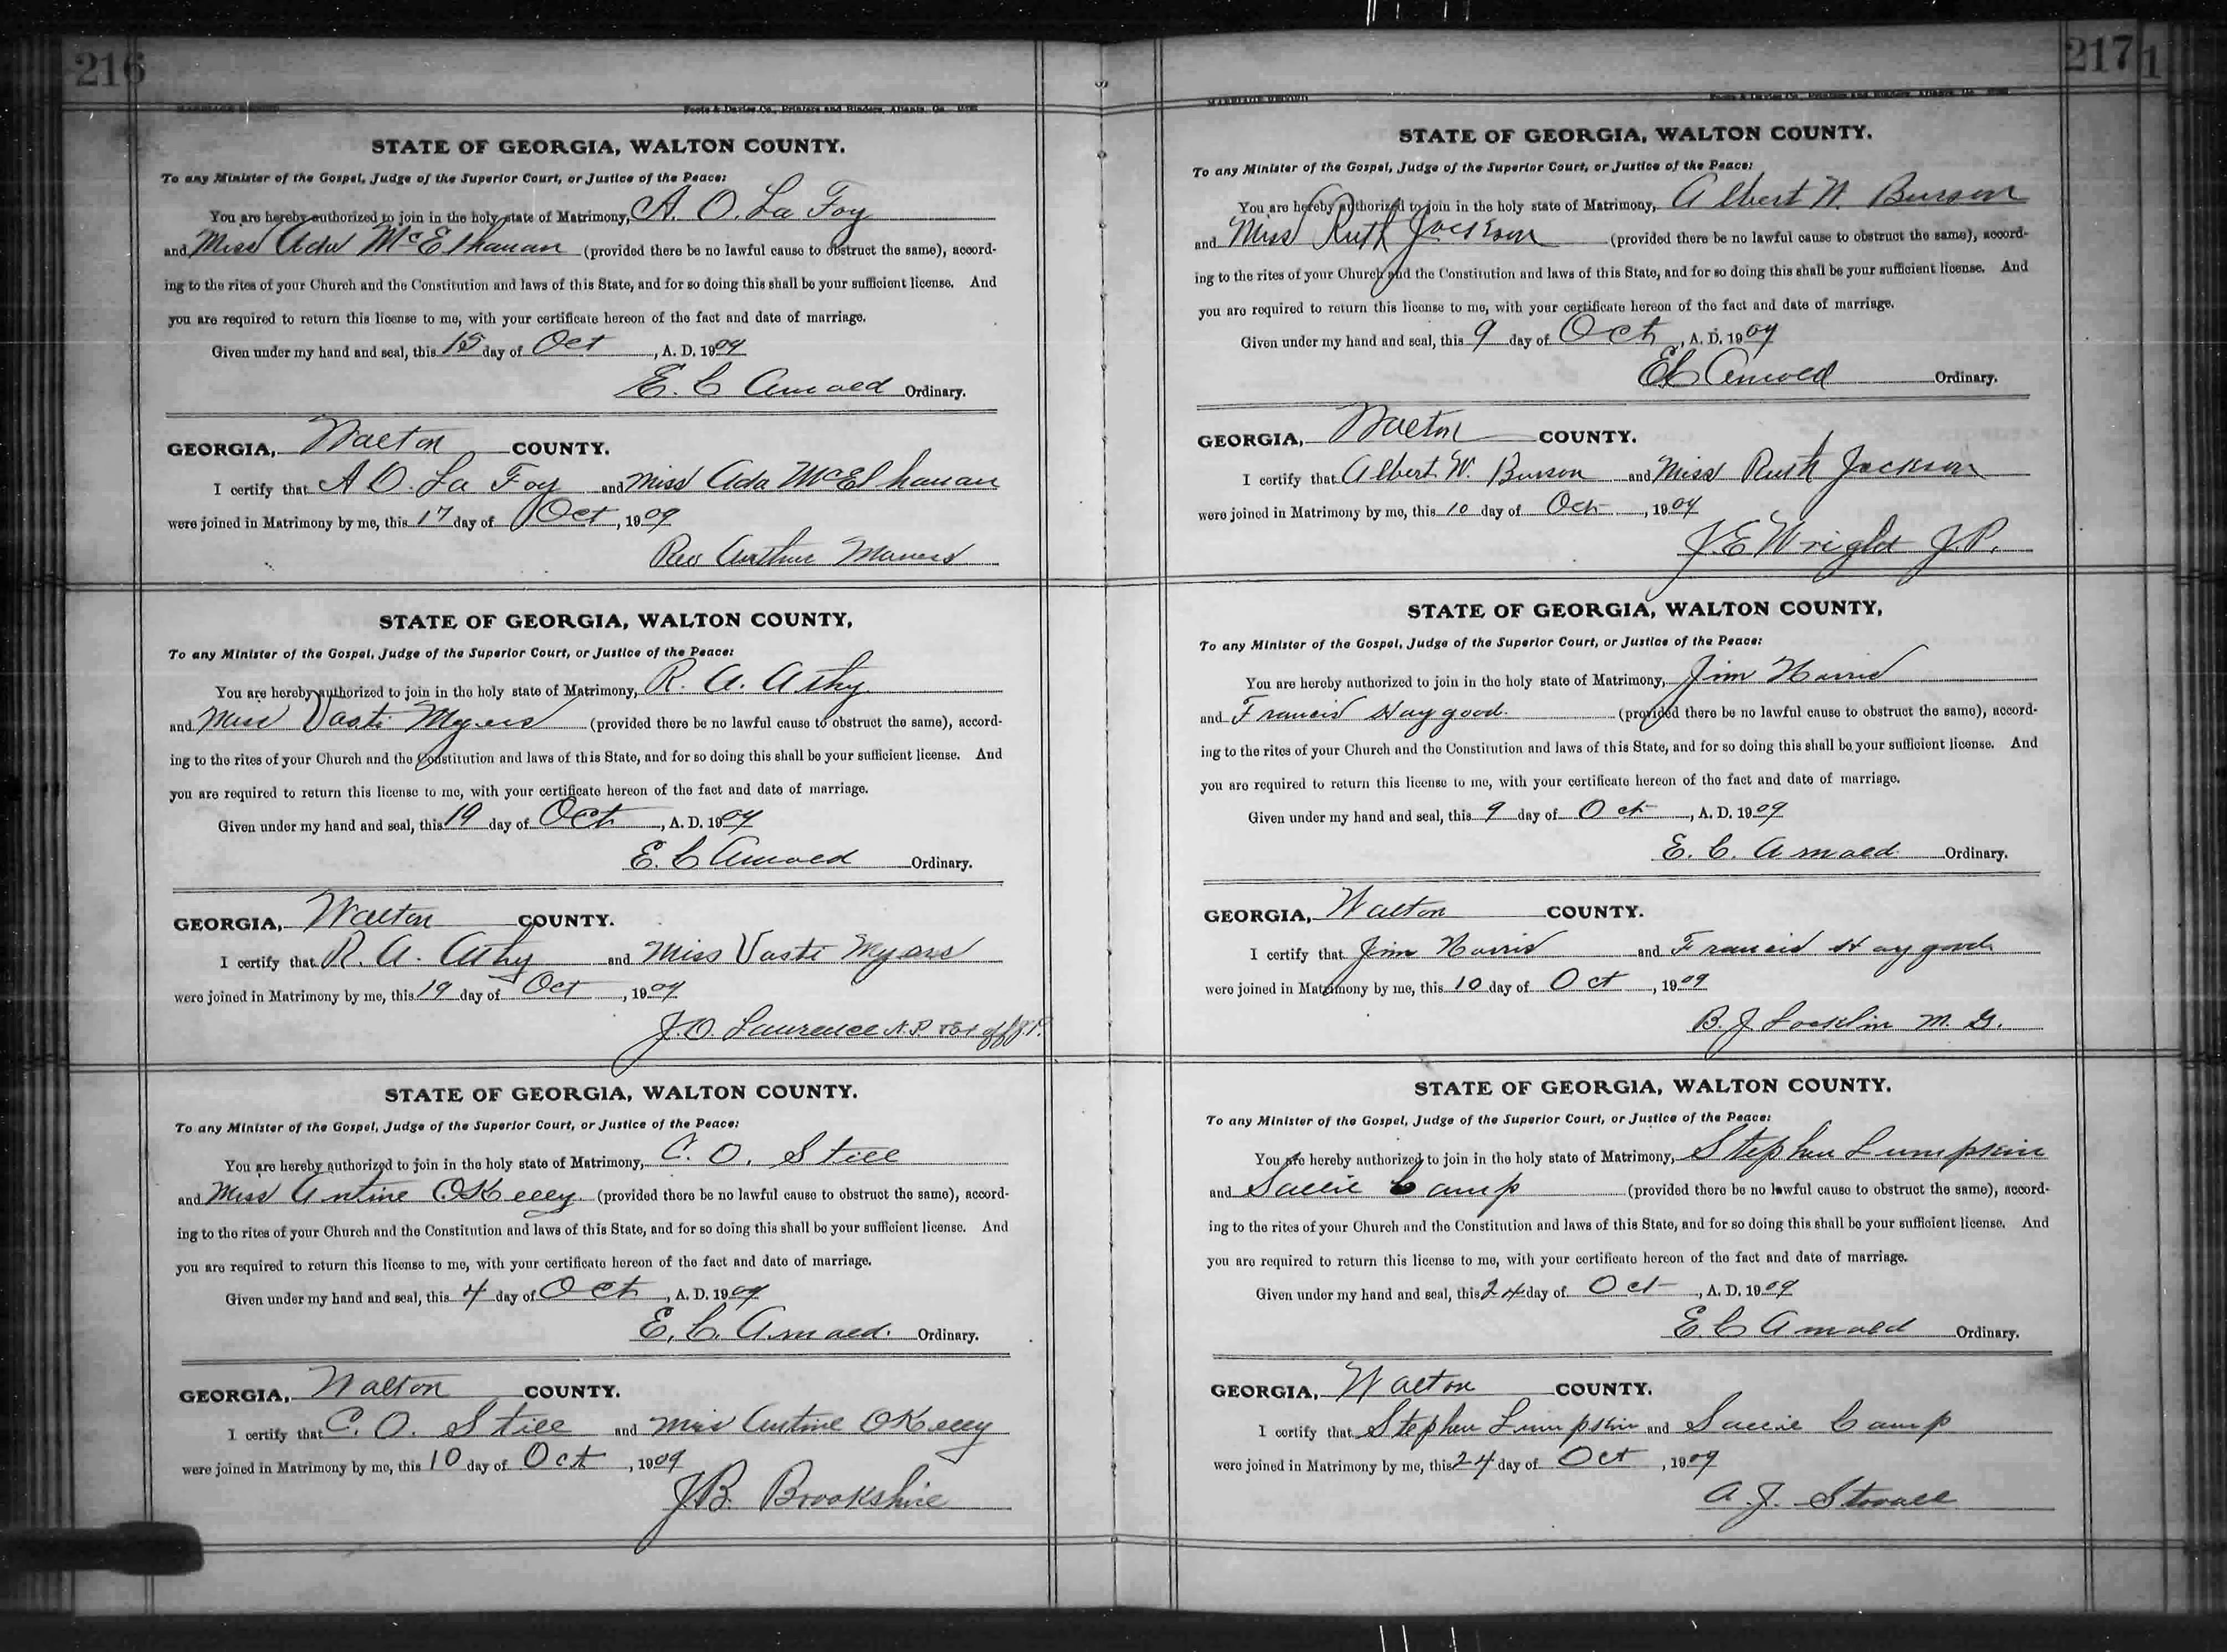 216
MARRIAGE RECORD
Foote & Davies Co., Printers and Binders, Atlanta, Ga.
STATE OF GEORGIA, WALTON COUNTY.
To any Minister of the Gospel, Judge of the Superior Court, or Justice of the Peace:
You are hereby authorized to join in the holy state of Matrimony, A. O. La Foy
and Miss Ada McElhanan (provided there be no lawful cause to obstruct the same), accord-
ing to the rites of your Church and the Constitution and laws of this State, and for so doing this shall be your sufficient license. And
you are required to return this license to me, with your certificate hereon of the fact and date of marriage.
Given under my hand and seal, this 15 day of Oct, A. D. 1909
E. C Arnold Ordinary.
GEORGIA, Walton COUNTY.
I certify that A O. La Foy and Miss Ada McElhanan
were joined in Matrimony by me, this 17 day of Oct, 1909
Rev Arthur Maness
STATE OF GEORGIA, WALTON COUNTY,
To any Minister of the Gospel, Judge of the Superior Court, or Justice of the Peace:
You are hereby authorized to join in the holy state of Matrimony, R. A. Athy
and Miss Vasti Myers (provided there be no lawful cause to obstruct the same), accord-
ing to the rites of your Church and the Constitution and laws of this State, and for so doing this shall be your sufficient license. And
you are required to return this license to me, with your certificate hereon of the fact and date of marriage.
Given under my hand and seal, this 19 day of Oct, A. D. 1909
E. C Arnold Ordinary.
GEORGIA, Walton COUNTY.
I certify that R. A. Athy and Miss Vasti Myers
were joined in Matrimony by me, this 19 day of Oct, 1909
J. O. Laurence N. P. & Ex off J. P.
STATE OF GEORGIA, WALTON COUNTY.
To any Minister of the Gospel, Judge of the Superior Court, or Justice of the Peace:
You are hereby authorized to join in the holy state of Matrimony, C. O. Still
and Miss Antine OKelly (provided there be no lawful cause to obstruct the same), accord-
ing to the rites of your Church and the Constitution and laws of this State, and for so doing this shall be your sufficient license. And
you are required to return this license to me, with your certificate hereon of the fact and date of marriage.
Given under my hand and seal, this 4 day of Oct, A. D. 1909
E. C. Arnold. Ordinary.
GEORGIA, Walton COUNTY.
I certify that C. O. Still and Miss Antine OKelly
were joined in Matrimony by me, this 10 day of Oct, 1909
J. B. Brookshire
217
MARRIAGE RECORD
Foote & Davies Co., Printers and Binders, Atlanta, Ga.
STATE OF GEORGIA, WALTON COUNTY.
To any Minister of the Gospel, Judge of the Superior Court, or Justice of the Peace:
You are hereby authorized to join in the holy state of Matrimony, Albert W. Burson
and Miss Ruth Jackson (provided there be no lawful cause to obstruct the same), accord-
ing to the rites of your Church and the Constitution and laws of this State, and for so doing this shall be your sufficient license. And
you are required to return this license to me, with your certificate hereon of the fact and date of marriage.
Given under my hand and seal, this 9 day of Oct, A. D. 1909
E C Arnold Ordinary.
GEORGIA, Walton COUNTY.
I certify that Albert W. Burson and Miss Ruth Jackson
were joined in Matrimony by me, this 10 day of Oct, 1909
J. E Wright J. P.
STATE OF GEORGIA, WALTON COUNTY,
To any Minister of the Gospel, Judge of the Superior Court, or Justice of the Peace:
You are hereby authorized to join in the holy state of Matrimony, Jim Harris
and Francis Haygood. (provided there be no lawful cause to obstruct the same), accord-
ing to the rites of your Church and the Constitution and laws of this State, and for so doing this shall be your sufficient license. And
you are required to return this license to me, with your certificate hereon of the fact and date of marriage.
Given under my hand and seal, this 9 day of Oct, A. D. 1909
E. C. Arnold. Ordinary.
GEORGIA, Walton COUNTY.
I certify that Jim Harris and Francis Haygood
were joined in Matrimony by me, this 10 day of Oct, 1909
B. J. Locklin M. G.
STATE OF GEORGIA, WALTON COUNTY.
To any Minister of the Gospel, Judge of the Superior Court, or Justice of the Peace:
You are hereby authorized to join in the holy state of Matrimony, Stephen Lumpkin
and Sallie Camp (provided there be no lawful cause to obstruct the same), accord-
ing to the rites of your Church and the Constitution and laws of this State, and for so doing this shall be your sufficient license. And
you are required to return this license to me, with your certificate hereon of the fact and date of marriage.
Given under my hand and seal, this 24 day of Oct, A. D. 1909
E. C Arnold Ordinary.
GEORGIA, Walton COUNTY.
I certify that Stephen Lumpkin and Sallie Camp
were joined in Matrimony by me, this 24 day of Oct, 1909
A. J. Stovall